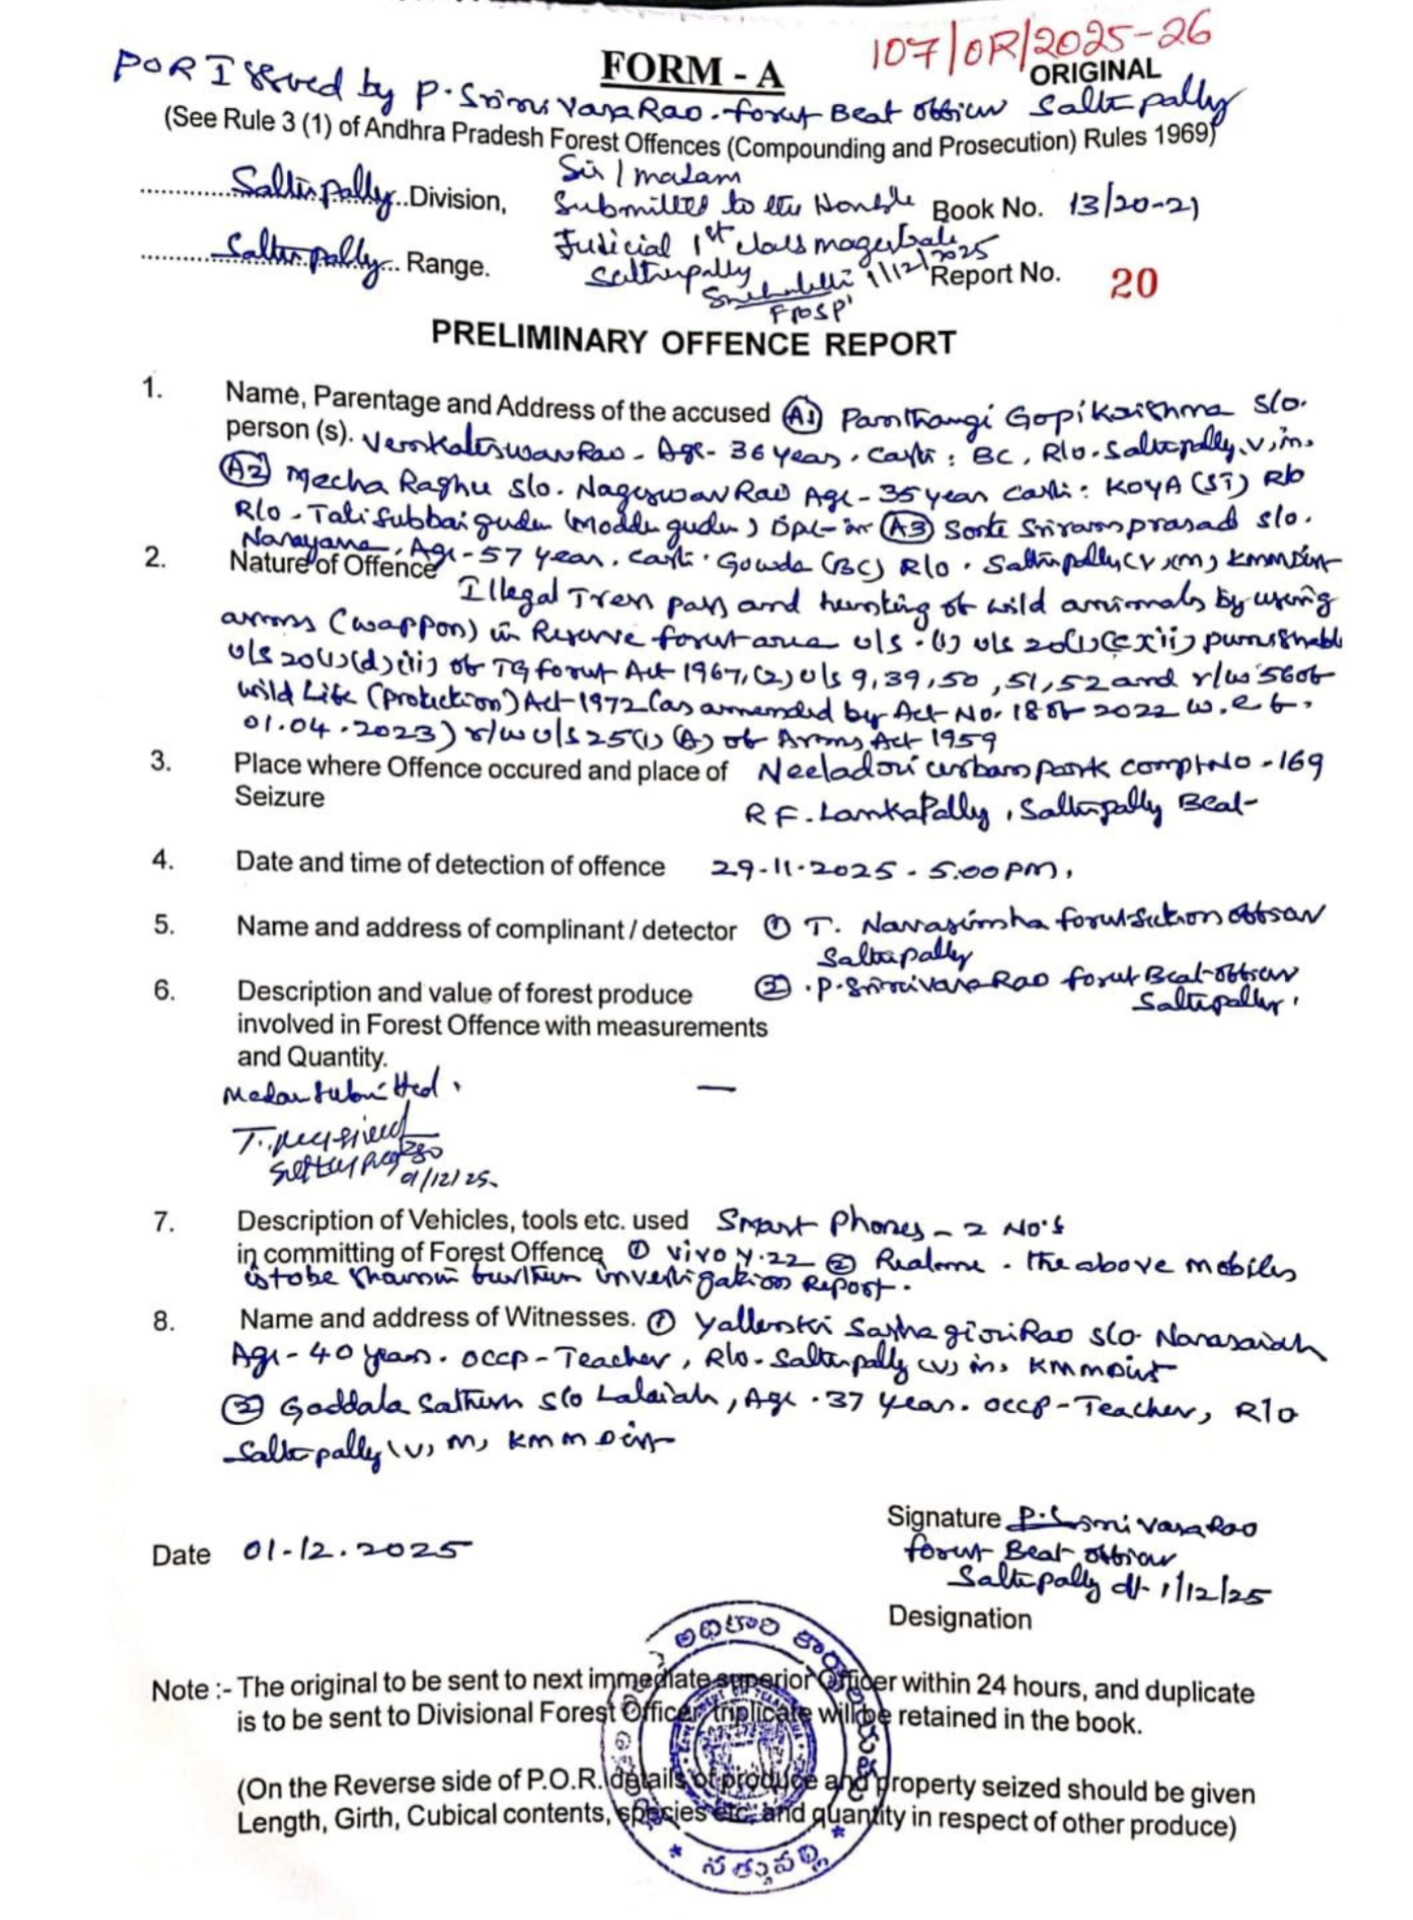 107/OR/2025-26
FORM - A
ORIGINAL
POR Issued by P. Srinivasa Rao. Forest Beat Officer Sathupally
(See Rule 3 (1) of Andhra Pradesh Forest Offences (Compounding and Prosecution) Rules 1969)
Sathupally Division,
Sathupally Range.
Sir / madam
Submitted to the Honble
Judicial 1st class magestrate
Sathupally
1/12/2025
FROSP
Book No. 13/20-21
Report No. 20
PRELIMINARY OFFENCE REPORT
1. Name, Parentage and Address of the accused (A1) Panthangi Gopi Krishna S/o.
person (s). Venkateswara Rao - Age- 36 years, caste: BC, R/o. Sathupally, V, m.
(A2) Mecha Raghu S/o. Nageswara Rao Age - 35 year Caste: KOYA (ST) R/o
R/o - Tati Subbaigudem (Moddugudem) (A3) Sonte Sriramprasad S/o.
Narayana, Age - 57 year. caste. Gowda (BC) R/o. Sathupally (V)(M) KMM Dist
2. Nature of Offence
Illegal Tress pass and hunting of wild animals by using
arms (wappon) in Reserve forest area u/s. (1) u/s 20(1)(c)(xii) punishable
u/s 20(1)(d)(iii) of TG forest Act 1967, (2) u/s 9, 39, 50, 51, 52 and r/w 56 of
Wild Life (Protection) Act-1972 (as ammended by Act No. 18 of 2022 w.e.f.
01.04.2023) r/w u/s 25(1)(A) of Arms Act 1959
3. Place where Offence occured and place of Neeladri urban park compt No - 169
Seizure R F. Lankapally, Sathupally Beat
4. Date and time of detection of offence 29-11-2025 - 5.00 pm.
5. Name and address of complinant / detector (1) T. Narasimha forest Section officer
Sathupally
(2) P. Srinivasa Rao forest Beat officer
Sathupally.
6. Description and value of forest produce
involved in Forest Offence with measurements
and Quantity.
Madam Submitted. —
01/12/25.
7. Description of Vehicles, tools etc. used Smart Phones - 2 No's
in committing of Forest Offence (1) vivo Y.22 (2) Realme. The above mobiles
is to be shown in further investigation Report.
8. Name and address of Witnesses. (1) Yallanki Sashagiri Rao S/o Narasaiah
Age - 40 years. occp - Teacher, R/o - Sathupally (V) m, KMM Dist
(2) Gaddala Sathish S/o Lalaiah, Age. 37 year. occp - Teacher, R/o
Sathupally (V) M, KMM Dist
Date 01-12.2025
Signature P. Srinivasa Rao
forest Beat officer
Sathupally dt 1/12/25
Designation
Note :- The original to be sent to next immediate superior Officer within 24 hours, and duplicate
is to be sent to Divisional Forest Officer triplicate will be retained in the book.
(On the Reverse side of P.O.R. details of produce and property seized should be given
Length, Girth, Cubical contents, species etc. and quantity in respect of other produce)
సత్తుపల్లి